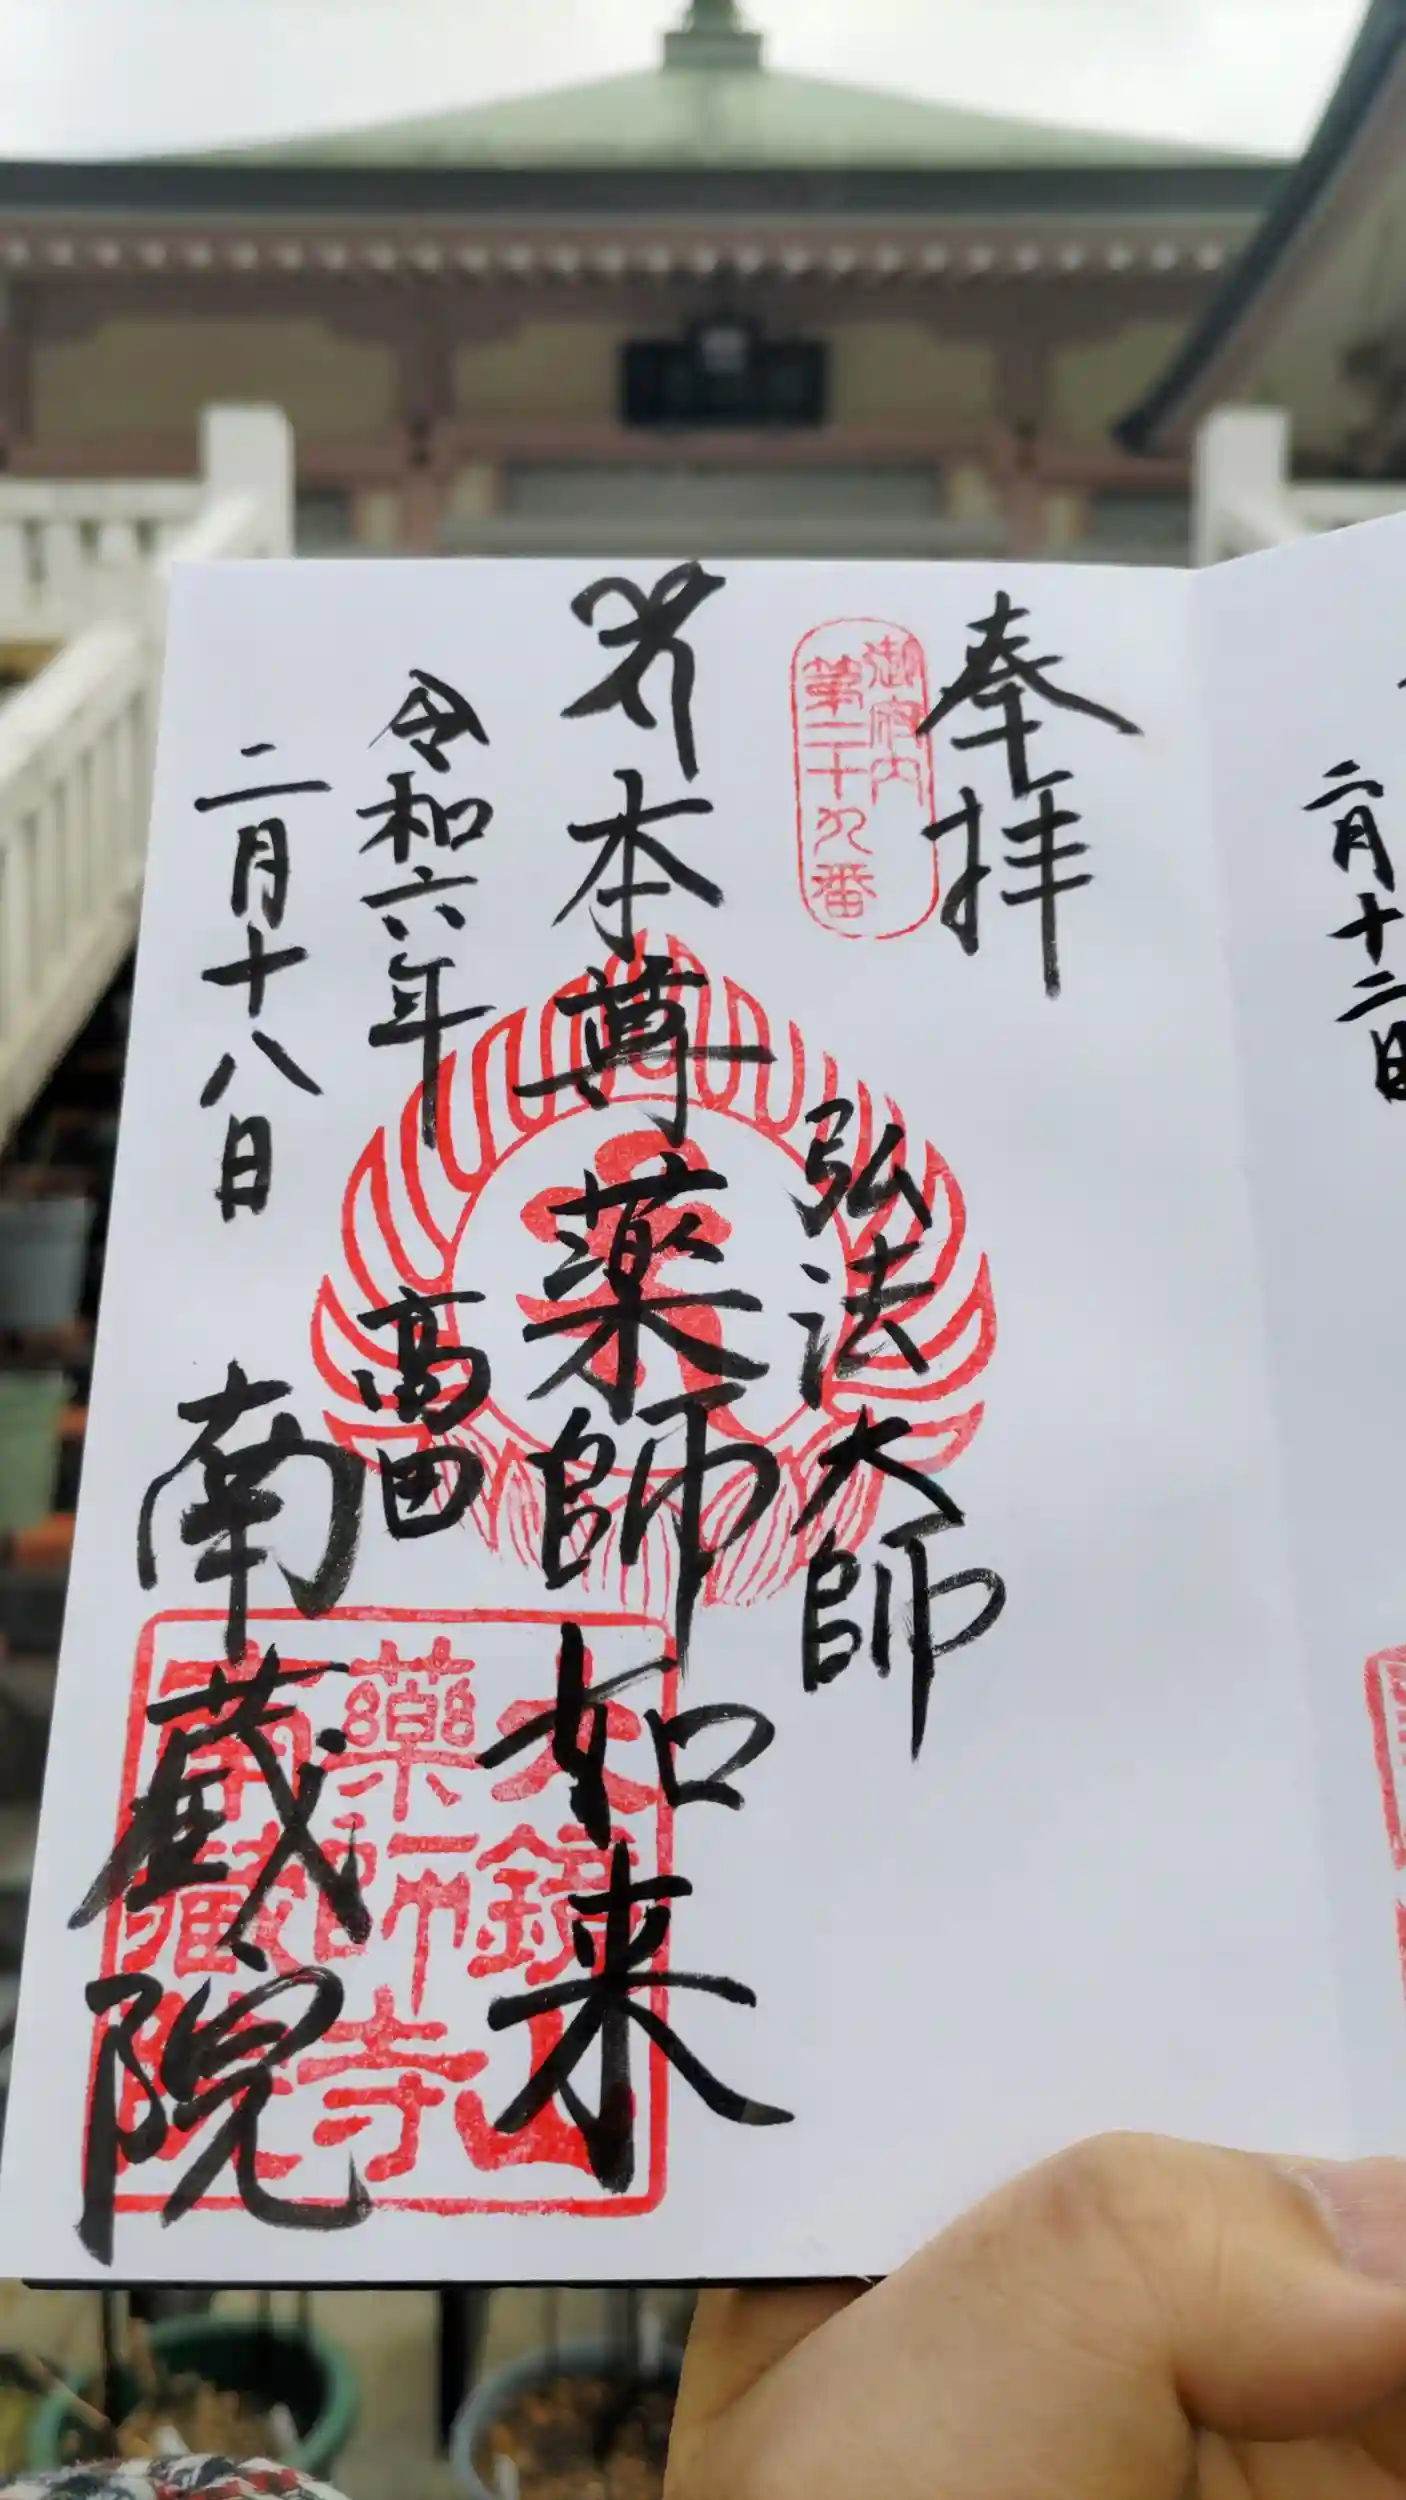 二月十二日
奉拝
御府内
第二十九番
弘法大師
本尊薬師如来
令和六年
二月十八日
高田
南蔵院
大鏡山
薬師寺
南蔵院